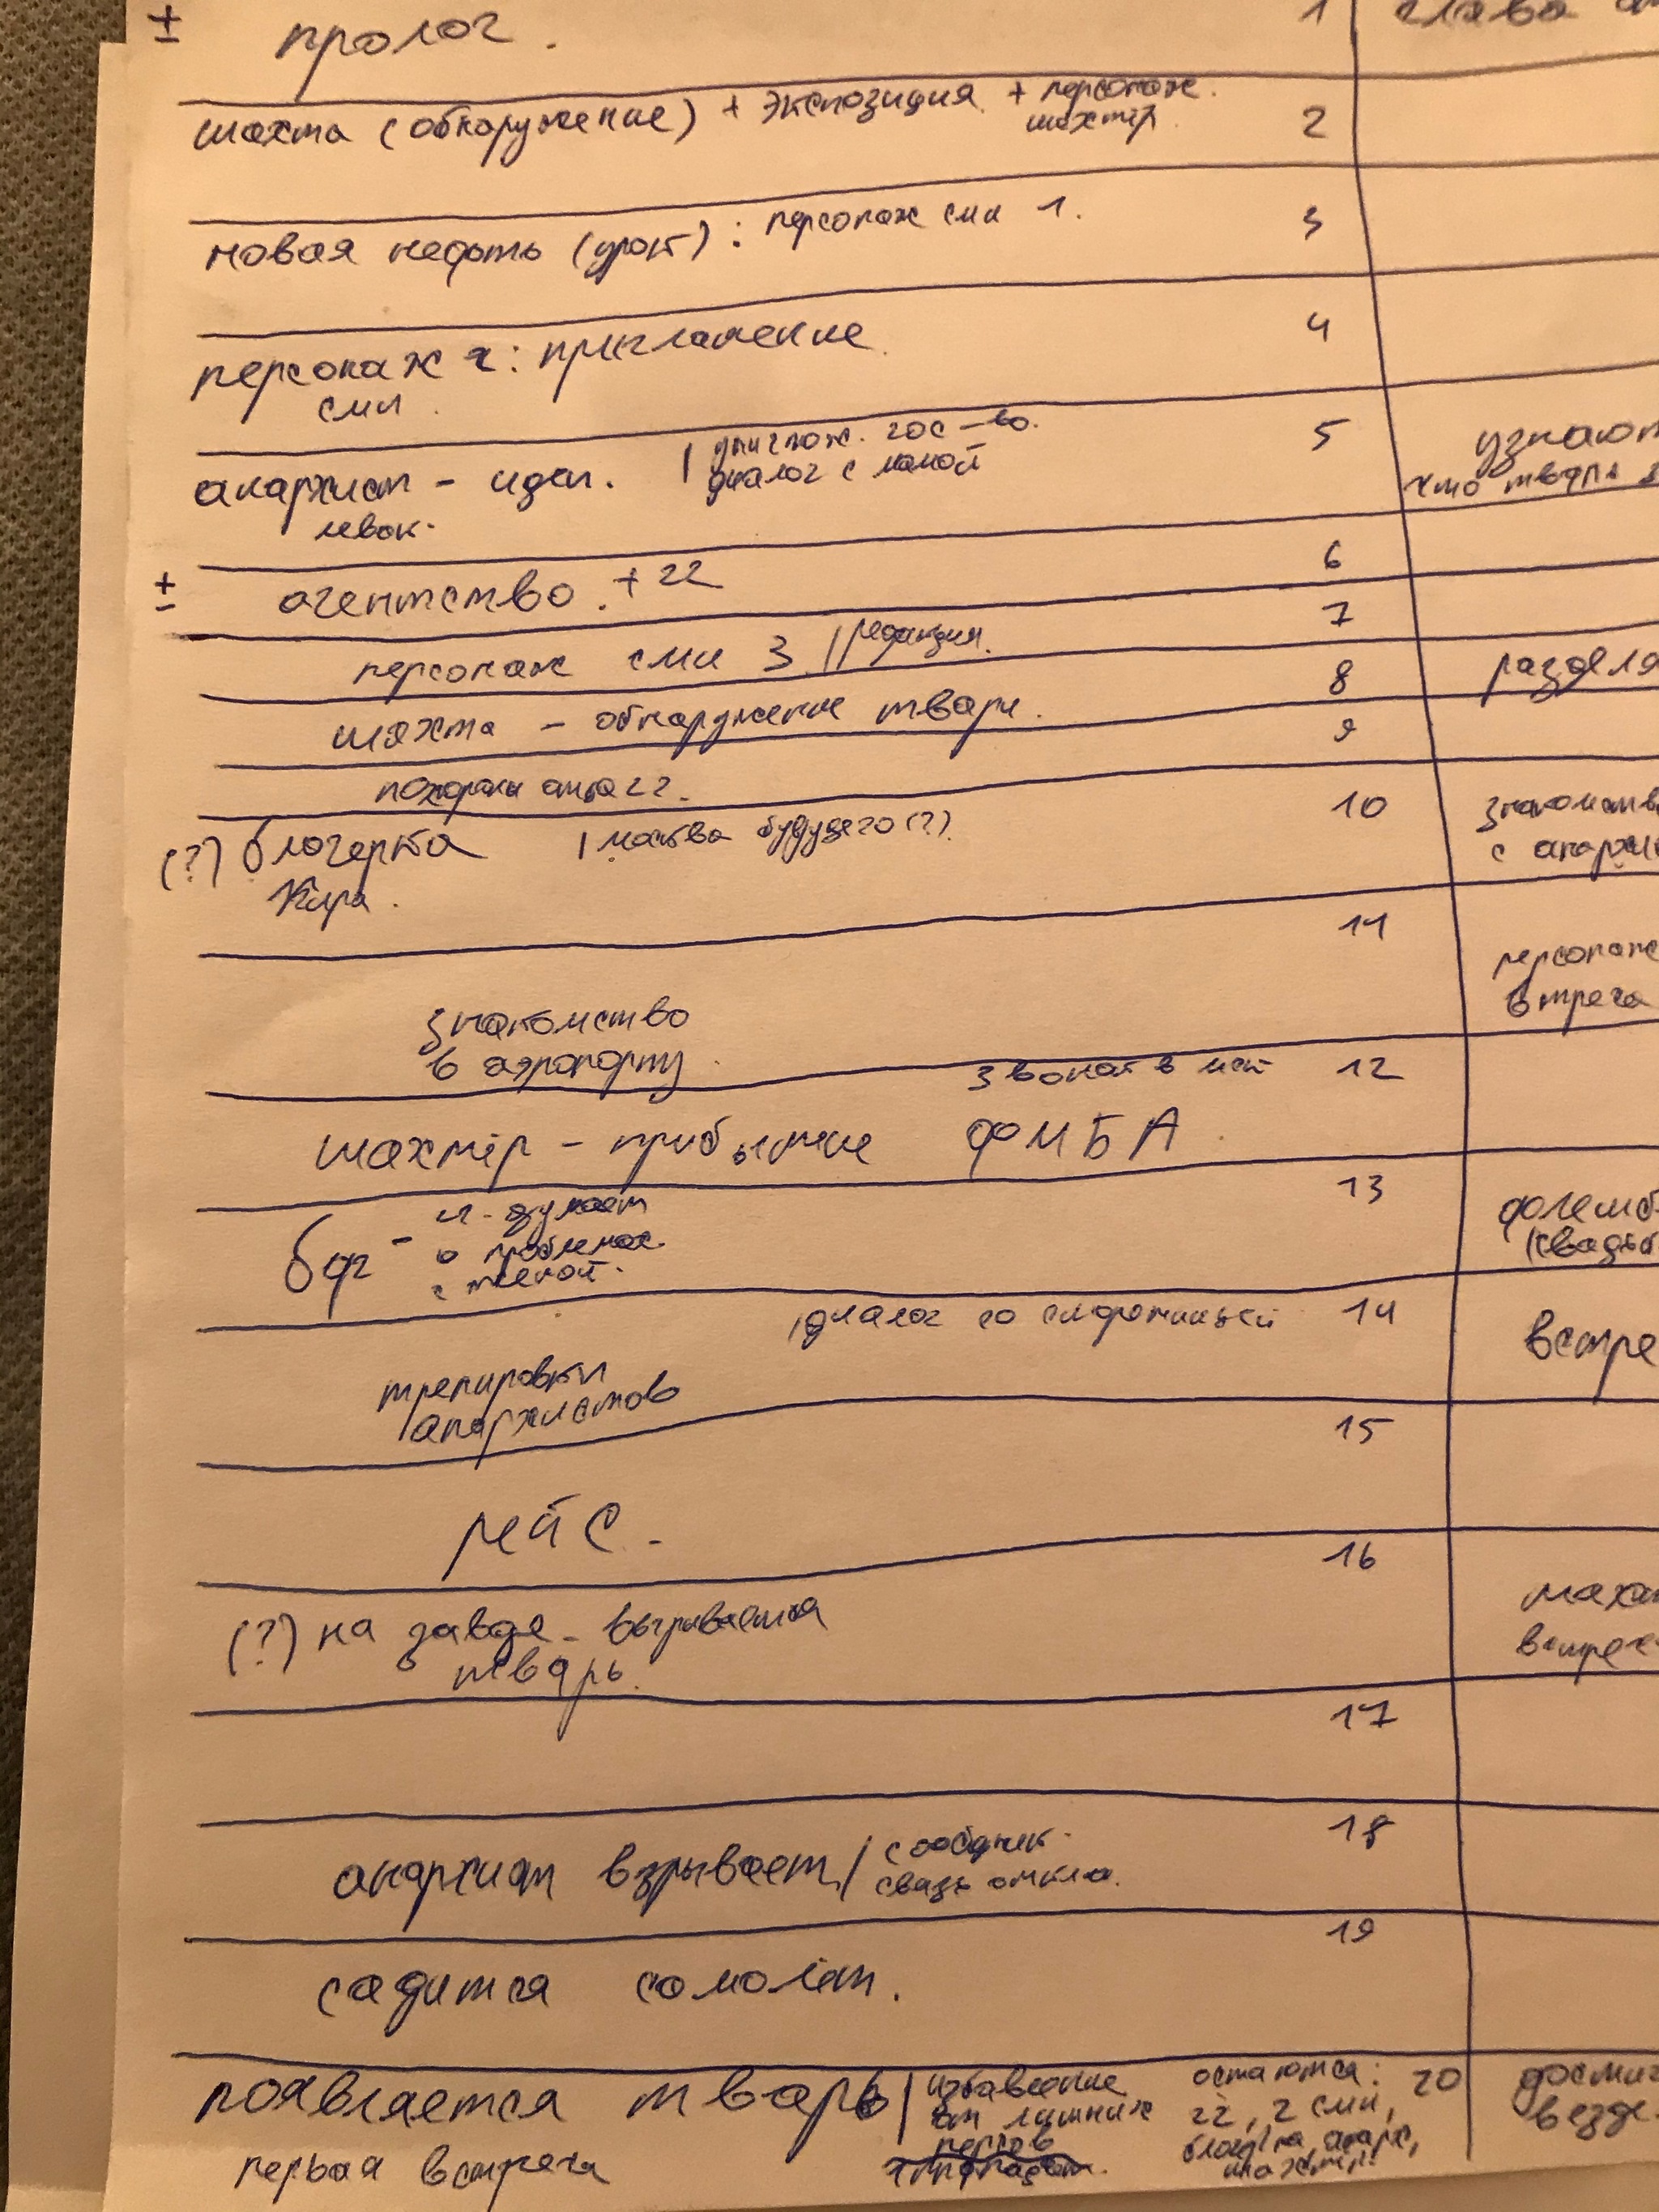 ± пролог. 1
глава
шахта (обнаружение) + экспозиция + персонаж. 2
шахтёр.
новая нефть (урок): персонаж сми 1. 3
персонаж 2: приглашение 4
сми.
анархист - идеи. | уничтож. гос-во. 5
диалог с мамой
левак.
узнают
что тварь
± агентство. + 22 6
персонаж сми 3 // редакция. 7
шахта - обнаружение твари. 8
разделя
похороны отца 22. 9
(?) блогерка | москва будущего (?) 10
Кира.
знакомств
с анархи
11
знакомство
в аэропорту.
персонаж
встреча
звонок в 12
шахтёр - прибытие ФМБА.
13
бдг - и - думает
о проблемах
с женой.
(свадьб
| диалог со 14
тренировки
анархистов
встре
15
рейс.
16
(?) на заводе - вырывается
тварь.
встреч
17
анархист взрывает / сообщник. 18
связь откл.
19
садится самолёт.
появляется тварь | избавление остаются: 20
от лишних 22, 2 сми,
перс-в
первая встреча
шахтёр.
везде.